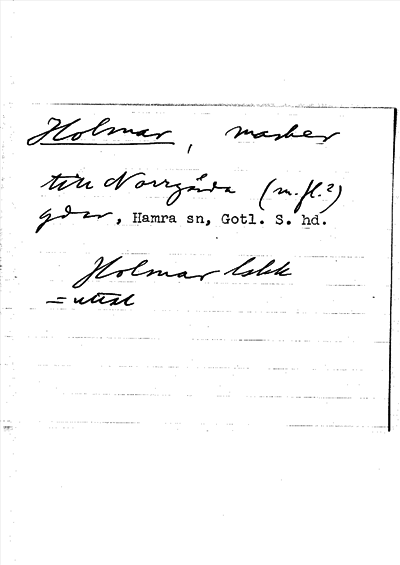 Holmar, marker
till Norrgårda (m.fl.?)
gdar, Hamra sn, Gotl. S. hd.
Holmar lskk
= uttal